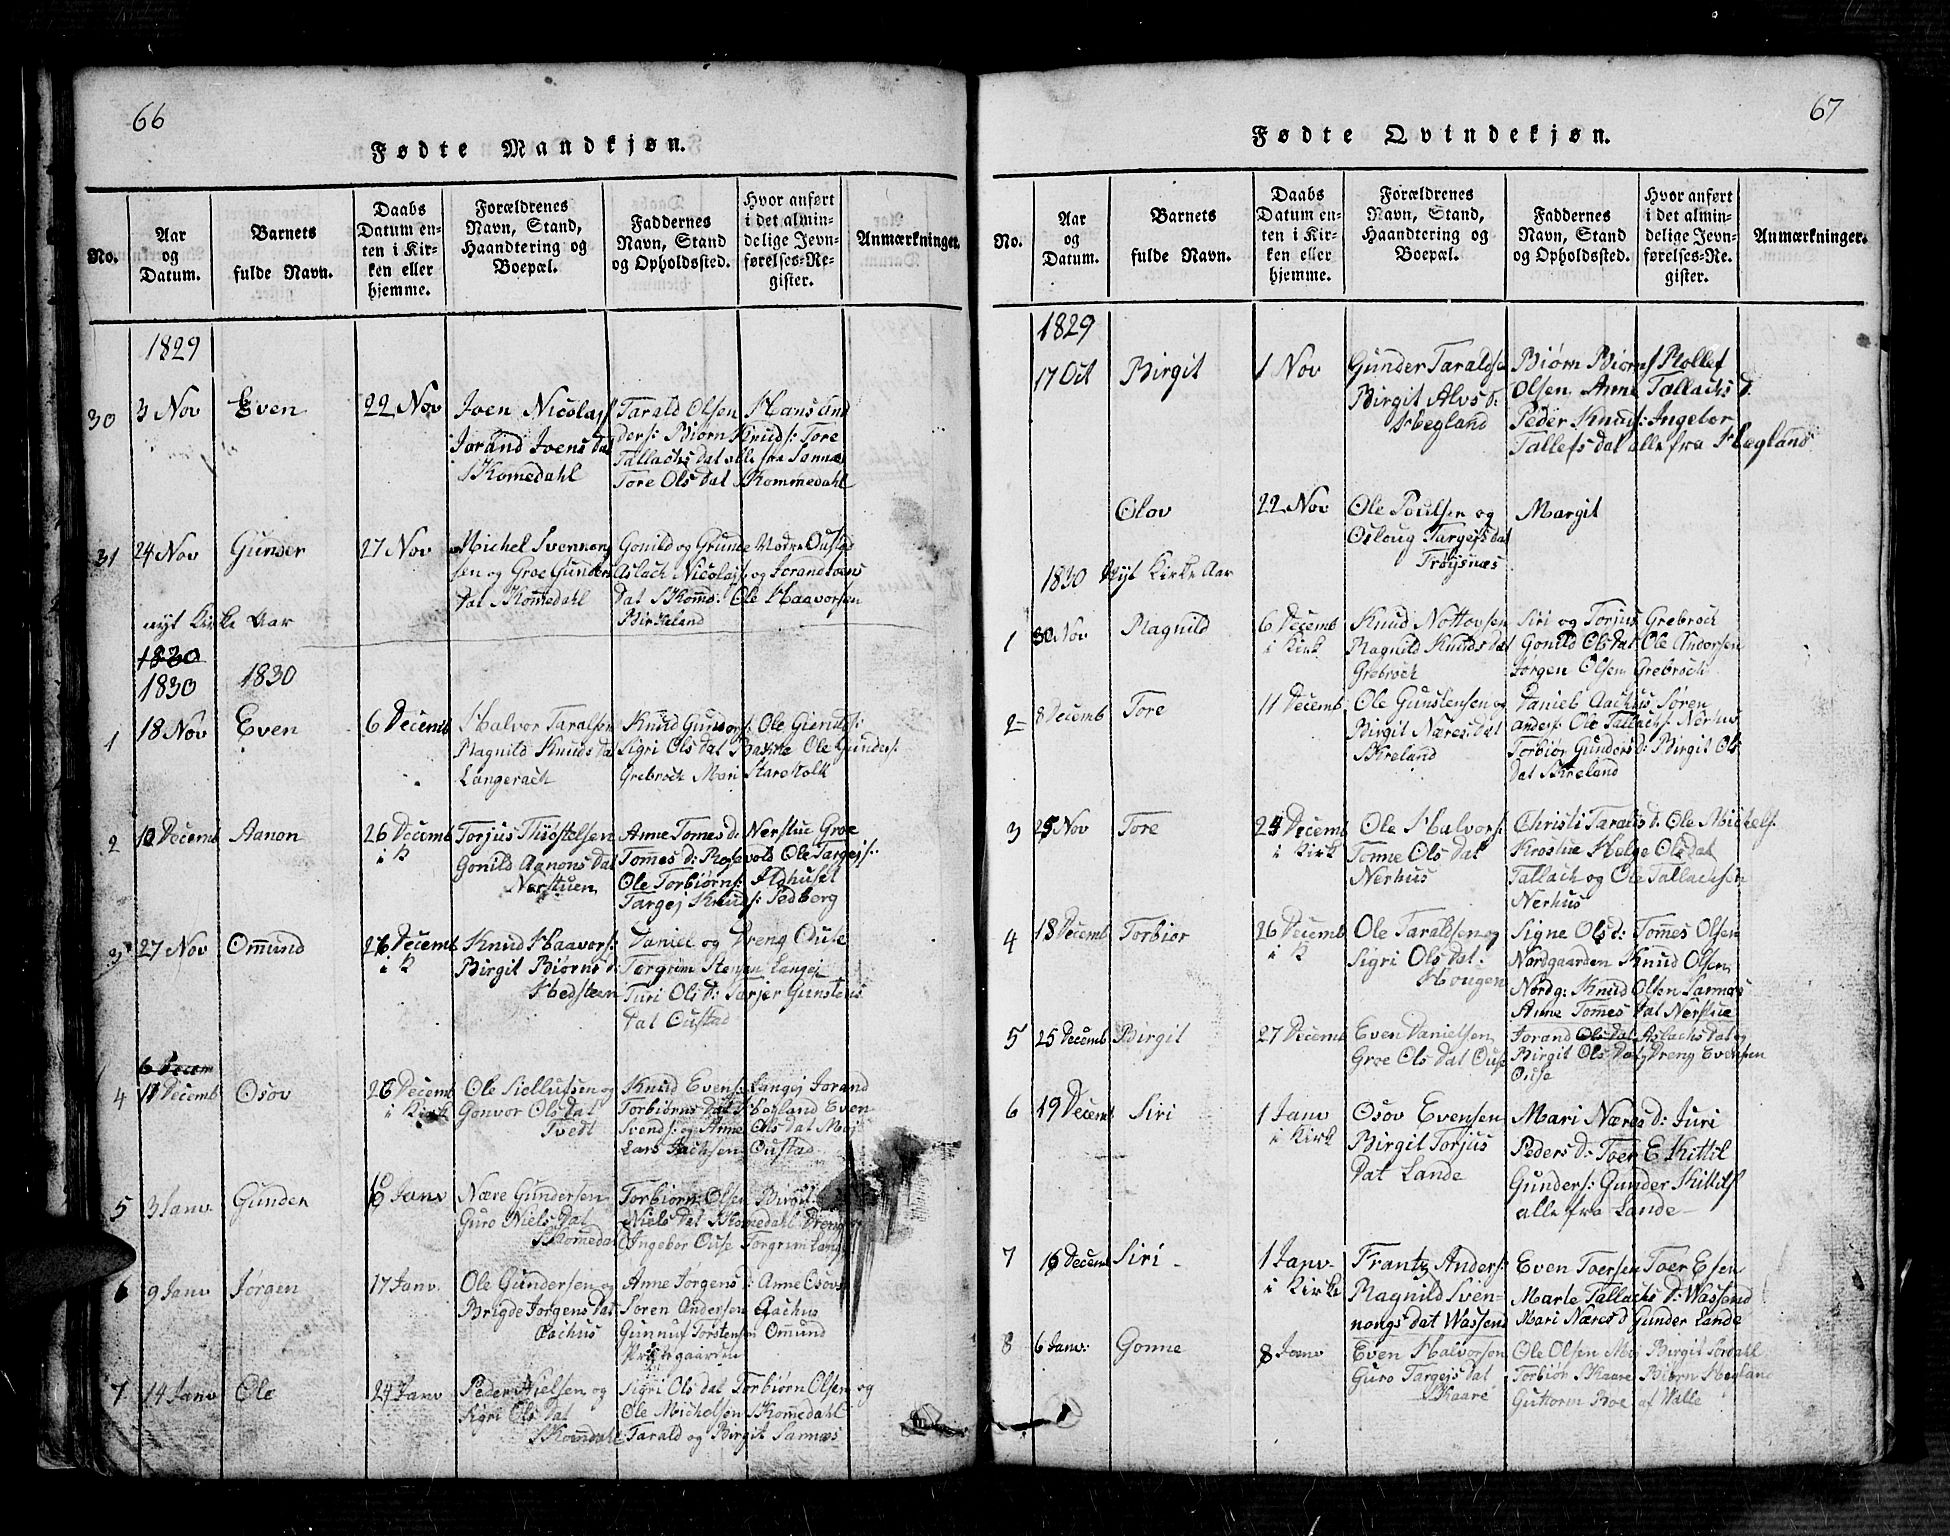 66
Fødte Mandkjøn.
No.
Aar
og
Datum.
Barnets
fulde Navn.
Daabs
Datum en-
ten i Kir-
ken eller
hjemme.
Forældrenes
Navn, Stand,
Haandtering og
Boepæl.
Faddernes
Navn, Stand
og Opholdssted.
Hvor anført
i det almin-
delige Jevn-
førelses-Re-
gister.
Anmærkninger.
1829
30 3 Nov Even 22 Nov
Iven Nicolajs
Jorand Ivens dat
Skomedahl
Tarald Olsen Hans And
ders: Biørn Knuds: Tore
Tallachs dat alle fra Sannes
Tore Ols dat Skommedahl
31 24 Nov Gunder 27 Nov
Michel Svennung
sen og Groe Gunders
dat Skomedahl
Gonild og Gunde Nodre Oustad
Aslach Nicolajs og Jorand Ivens
dat Skomd: Ole Haavorsen
Birkeland
nyt Kirke Aar
1830
1830 1830
1 18 Nov Even 6 Decemb
Halvor Taralsen
Magnild Knuds dat
Langerach
Knud Gunders: Ole Gieruls:
Sigri Ols dat Bakke Ole Gunders:
Grebroch Mari Staroholk
2 10 Decemb Aanon 26 Decemb
i K
Torjus Thiostelsen
Gonild Aanons dat
Nerstuen
Anne Tomes d: Nerstue Groe
Tomes d: Rosevold Ole Targejs:
Ole Torbiørns: Ildhuset
Targej Knuds: Pedberg
3 27 Nov Omund 26 Decemb
i K
Knud Haavors:
Birgit Biørns d:
Hedsteen
Daniel og Dreng Ouse
Torgrim Stensen Langej
Turi Ols d: Tarjer Gunstens
dat Oustad
6 Decem
4 11 Decemb Osov 26 Decemb
i Kirk
Ole Siellufsen og
Gonvor Ols dat
Tvedt
Knud Evens: Langej Jorand
Torbiørns dat Hegland Even
Svends: og Anne Ols dat Moj
Lars Aachsen Oustad
5 3 Janv. Gunder 10 Janv
Nære Gundersen
Guro Niels dat
Skomedal
Torbiørn Olsen Birgit
Niels dat Skomedahl Dreng
Ingebor Ouse Torgrim Langej
6 9 Janv Jørgen 17 Janv.
Ole Gundersen og
Brigde Jørgens dat
Aachus
Anne Jørgens d: Anne Osovs
Søren Andersen Aachus
Gunnuf Torstensen Omund
Præstegaarden
7 14 Janv Ole 24 Janv
Peder Nielsen og
Sigri Ols dat
Skomdahl
Sigri Ols dat Torbiørn Olsen og
Ole Michelsen Skomedahl
Tarald og Birgit Sannæs
67
Fødte Qvindekjøn.
No.
Aar
og
Datum.
Barnets
fulde Navn.
Daabs
Datum en-
ten i Kir-
ken eller
hjemme.
Forældrenes
Navn, Stand,
Haandtering og
Boepæl.
Faddernes
Navn, Stand
og Opholdssted.
Hvor anført
i det almin-
delige Jevn-
førelses-Re-
gister.
Anmærkninger.
1829
17 Oct Birgit 1 Nov
Gunder Taralds
Birgit Alvs d:
Hegland
Biørn Biørns Rollef
Olsen Anne Tallachs d.
Peder Knuds: Ingeler
Tallefs dat alle fra Hegland
Olov 22 Nov
Ole Poulsen og
Osloug Targejs dat
Frøysnæs
Margit
1830 Nyt Kirke Aar
1 30 Nov Magnild 6 Decemb
i Kirk
Knud Nottovsen
Magnild Knuds dat
Grebroch
Siri og Torjus Grebroch
Gonild Ols dat Ole Andersen
Jørgen Olsen Grebroch
2 8 Decemb Tore 11 Decemb
Ole Gunstensen og
Birgit Næres dat
Skreland
Daniel Aachus Søren
Anders: Ole Tallachs: Nerhus
Torbiør Gunders d: Birgit Ols
dat Skreland
3 25 Nov Tore 25 Decemb
i Kirk
Ole Halvors:
Tonne Ols dat
Nerhus
Christi Taralds d: Ole Michels:
Krostue Helge Ols dat
Tallach og Ole Tallachsen
Nerhus
4 18 Decemb Torbiør 26 Decemb
i K
Ole Taraldsen og
Sigri Ols dat:
Hougen
Signe Ols d: Tomes Olsen
Nordgaarden Knud Olsen
Nordg: Knud Olsen Sannæs
Anne Tomes dat Nerstue
5 25 Decemb Birgit 27 Decemb
Even Danielsen
Groe Ols dat Ouse
Jorand Ols dat Aslachs dat og
Birgit Ols dat Dreng Evensen
Ouse
6 19 Decemb Siri 1 Janv
i Kirk
Osov Evensen
Birgit Torjus
dat Lande
Mari Næres d: Juri
Peders d: Toer E Kittil
Gunders: Gunder Kittils
alle fra Lande
7 16 Decemb Siri 1 Janv
i Kirke
Frantz Anders:
Magnild Sven-
nongs dat Wassend
Even Toersen Toer Esen
Marte Tallachs d: Wassend
Mari Næres d Gunder Lande
8 6 Janv: Gonne 8 Janv
Even Halvorsen
Guro Targejs dat
Skaare
Ole Olsen Moj Birgit Jordahl
Torbiør Skaare Biørn Hegland
Guttorm Boe af Walle